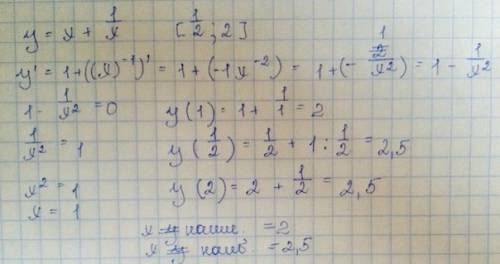 y = x + 1/x [1/2; 2]
y' = 1 + ((x)⁻¹)' = 1 + (-1x⁻²) = 1 + (- 1/x²) = 1 - 1/x²
1 - 1/x² = 0
1/x² = 1
x² = 1
x = 1
y(1) = 1 + 1/1 = 2
y(1/2) = 1/2 + 1 : 1/2 = 2,5
y(2) = 2 + 1/2 = 2,5
x наим. = 2
x наиб. = 2,5